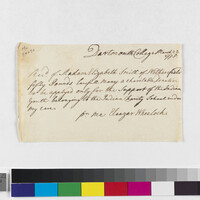 Dartmouth College March 22
Rec'd of Madam Elizabeth Smith of
fifty Pounds Lawful Money a charitable Donation
to be applied only for the Support of the Indian
Youth belonging to the Indian Charity School under
my care.
pr me Eleazar Wheelock